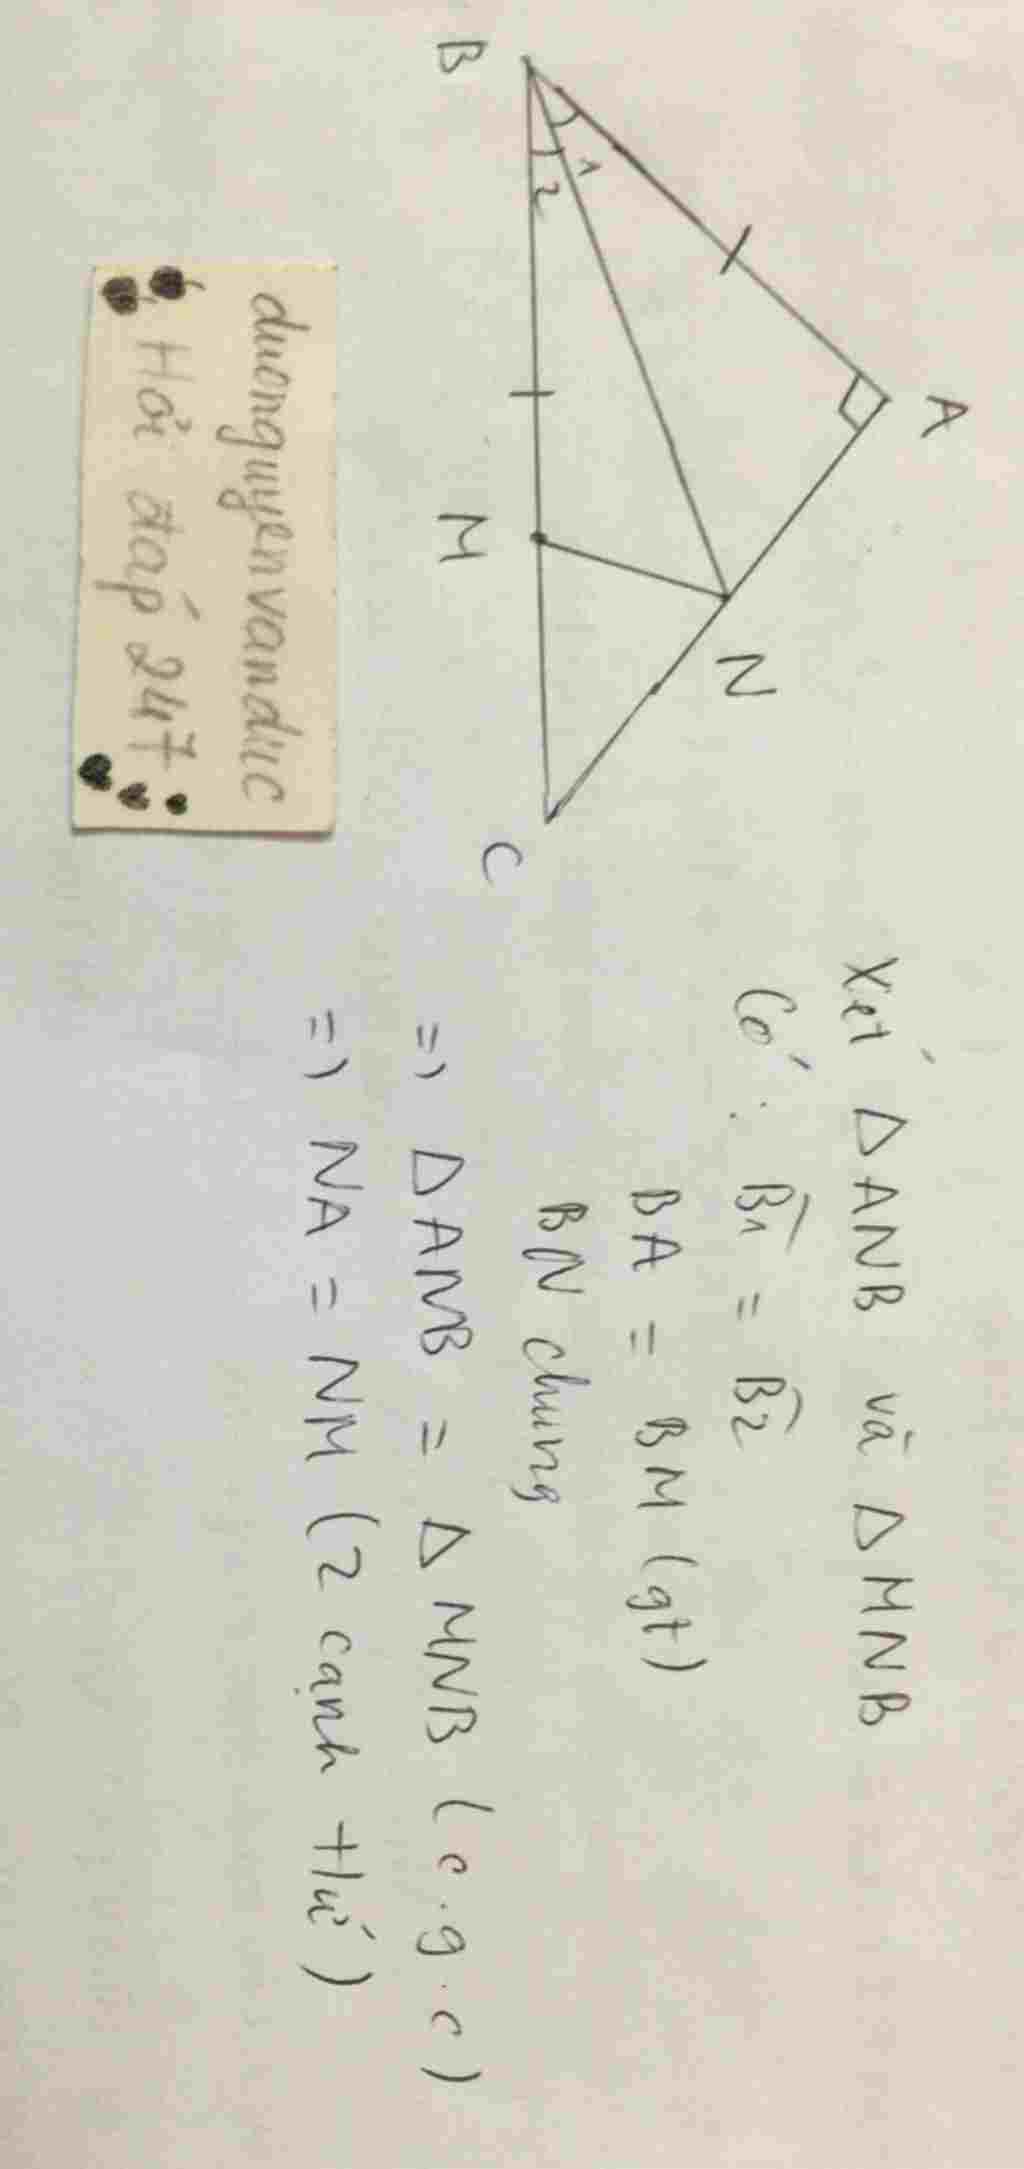 A
B
1
2
N
M
C
duongnguyenvanduc
Hỏi đáp 247
Xét Δ ANB và Δ MNB
Có: B̂1 = B̂2
BA = BM (gt)
BN chung
=> Δ ANB = Δ MNB (c.g.c)
=> NA = NM (2 cạnh tứ)